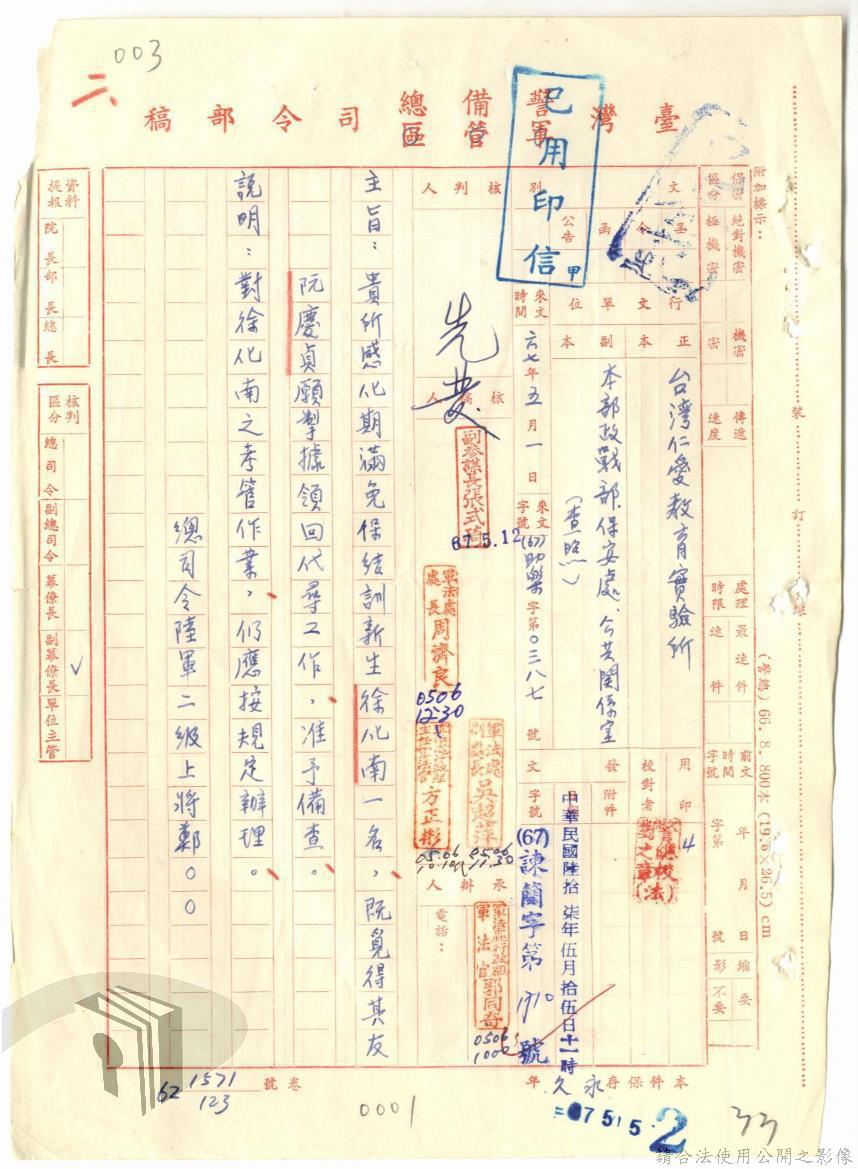 003
二、
臺灣警備總司令部稿
軍管區
已用印信 甲
附加標示：
保密區分
絕對機密
極機密
機密
密
傳遞速度
最速件
速件
處理時限
前文時間字號
年月日
字第
號
縮影
要
不要
文別
呈
令
函
公告
行文單位
正本
台灣仁愛教育實驗所
副本
本部政戰部、保安處、公共關係室
（查照）
來文時間
六七年五月一日
來文字號
(67)助樂字第〇三八七號
用印
4
校對者
附件
發文
中華民國陸拾柒年伍月拾伍日十一時
字號
(67)諫簡字第1710號
核判人
先發
核稿人
副參謀長張式琦
67.5.12
軍法處處長周濟良
0506
1230
軍法處副處長吳超萍
0506
11.30
方正彬
0506
承辦人
軍法官郭同奇
0506
1000
電話：
主旨：貴所感化期滿免保結訓新生徐化南一名，既覓得其友
阮慶貞願掣據領回代尋工作，准予備查。
說明：對徐化南之考管作業，仍應按規定辦理。
總司令陸軍二級上將鄭〇〇
資料提報
院長
部長
總長
核判區分
總司令
副總司令
幕僚長
副幕僚長
✓
單位主管
號
訂
線
(警總) 66. 8. 800本 (19.5×26.5) cm
本件保存永久年
卷號
1571
123
62
0001
67 5 15
2
33
請合法使用公開之影像